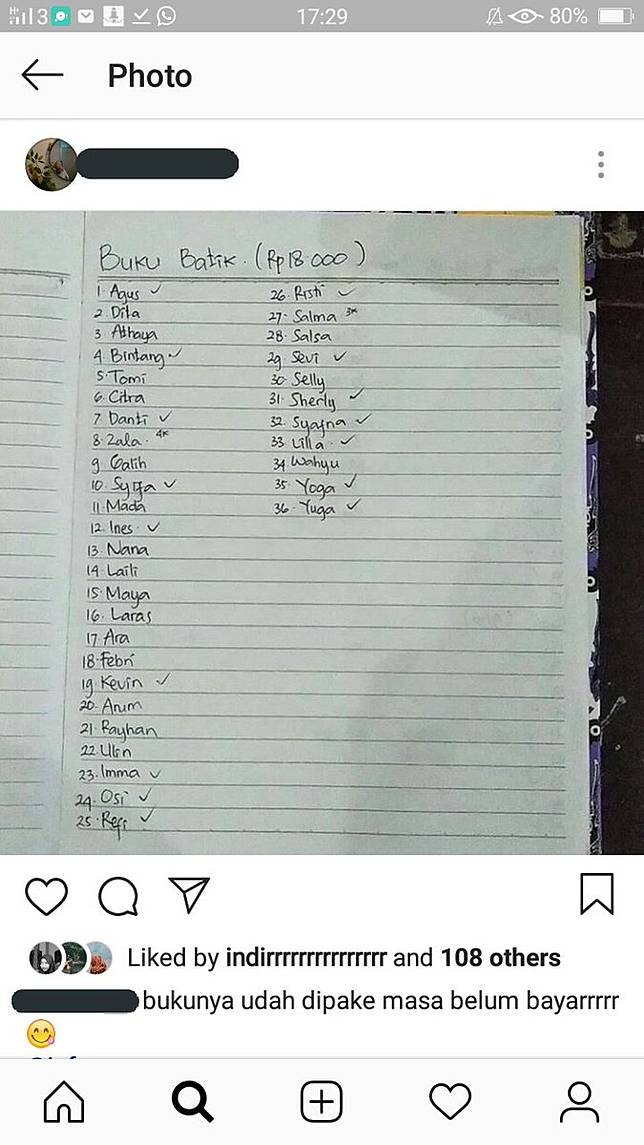 3
17:29
80%
Photo
Buku Batik. (Rp18.000)
1 Agus ✓
2. Dita
3 Athaya
4. Bintang ✓
5. Tomi
6. Citra
7. Danti ✓
8. Zala. 4x
9 Galih
10. Syifa ✓
11. Mada
12. Ines ✓
13. Nana
14. Laili
15. Maya
16. Laras
17. Ara
18. Febri
19. Kevin ✓
20. Arum
21. Rayhan
22. Ulin
23. Imma ✓
24. Osi ✓
25. Refi ✓
26. Risti ✓
27. Salma 3x
28. Salsa
29. Sevi ✓
30. Selly
31. Sherly ✓
32. Syafna ✓
33. Lilla ✓
34. Wahyu
35. Yoga ✓
36. Yuga ✓
Liked by indirrrrrrrrrrrrrrr and 108 others
bukunya udah dipake masa belum bayarrrrr
😋